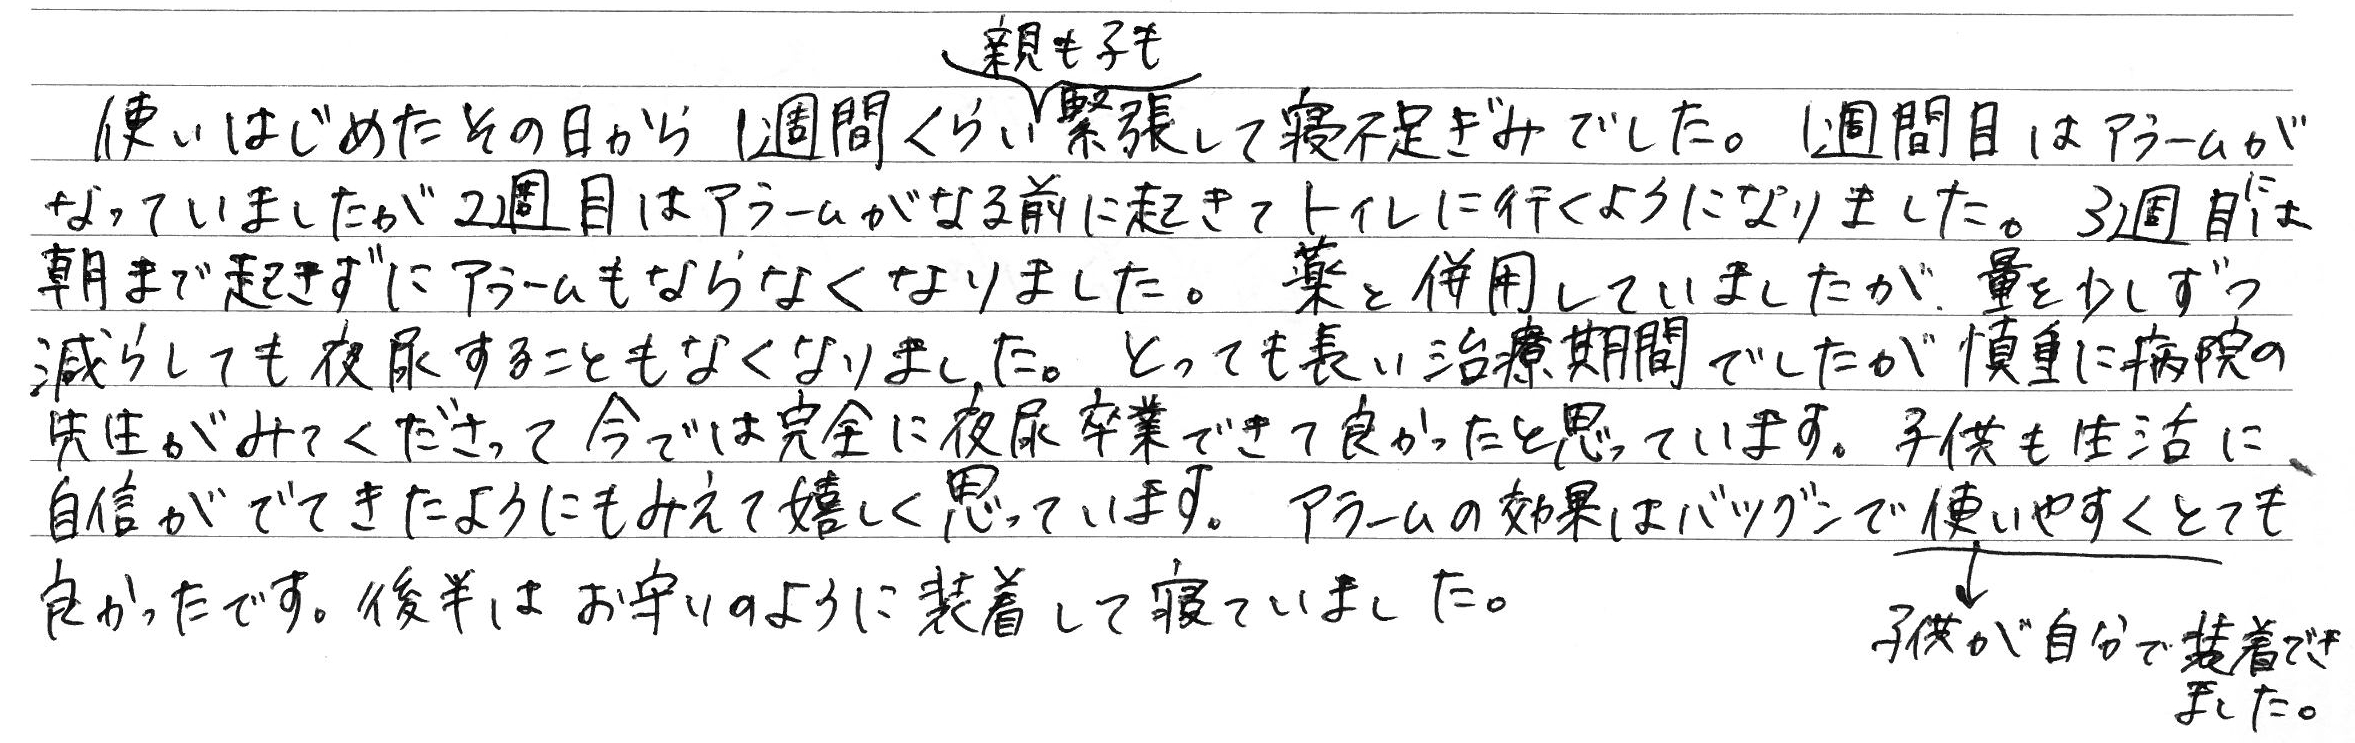 親も子も
使いはじめたその日から1週間くらい緊張して寝不足ぎみでした。1週間目はアラームが
なっていましたが2週目はアラームがなる前に起きてトイレに行くようになりました。3週目には
朝まで起きずにアラームもならなくなりました。薬と併用していましたが、量を少しずつ
減らしても夜尿することもなくなりました。とっても長い治療期間でしたが慎重に病院の
先生がみてくださって今では完全に夜尿卒業できて良かったと思っています。子供も生活に
自信がでてきたようにもみえて嬉しく思っています。アラームの効果はバツグンで使いやすくとても
良かったです。後半はお守りのように装着して寝ていました。
子供が自分で装着でき
ました。